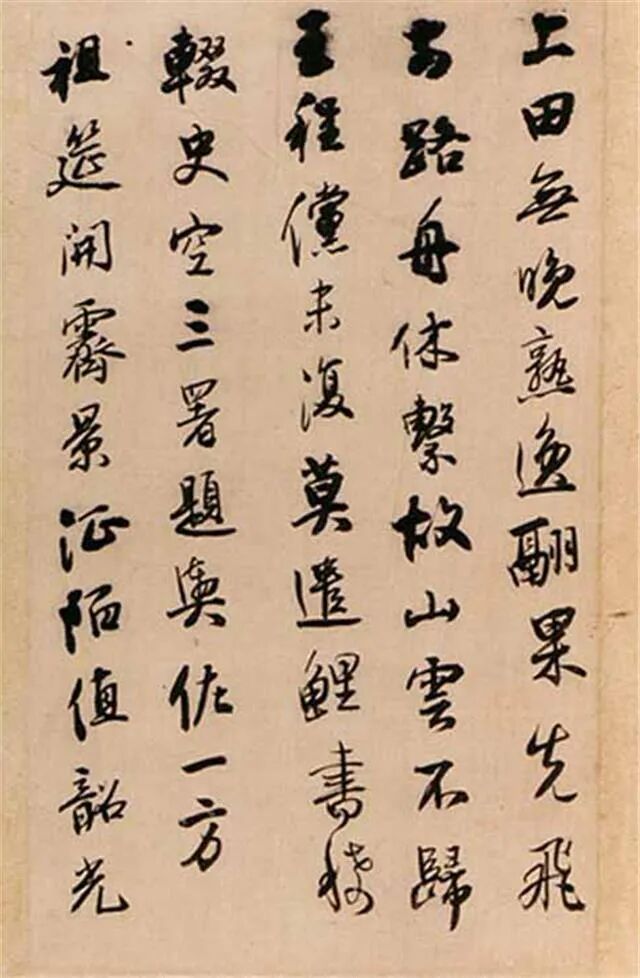 上田無晚熟逸翮果先飛
前路舟休繫故山雲不歸
王程儻未復莫遣鯉書稀
輟史空三署題輿佐一方
祖筵開霽景征陌值韶光